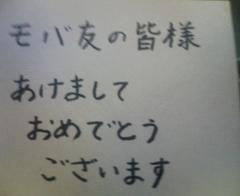 モバ友の皆様
あけまして
おめでとう
ございます